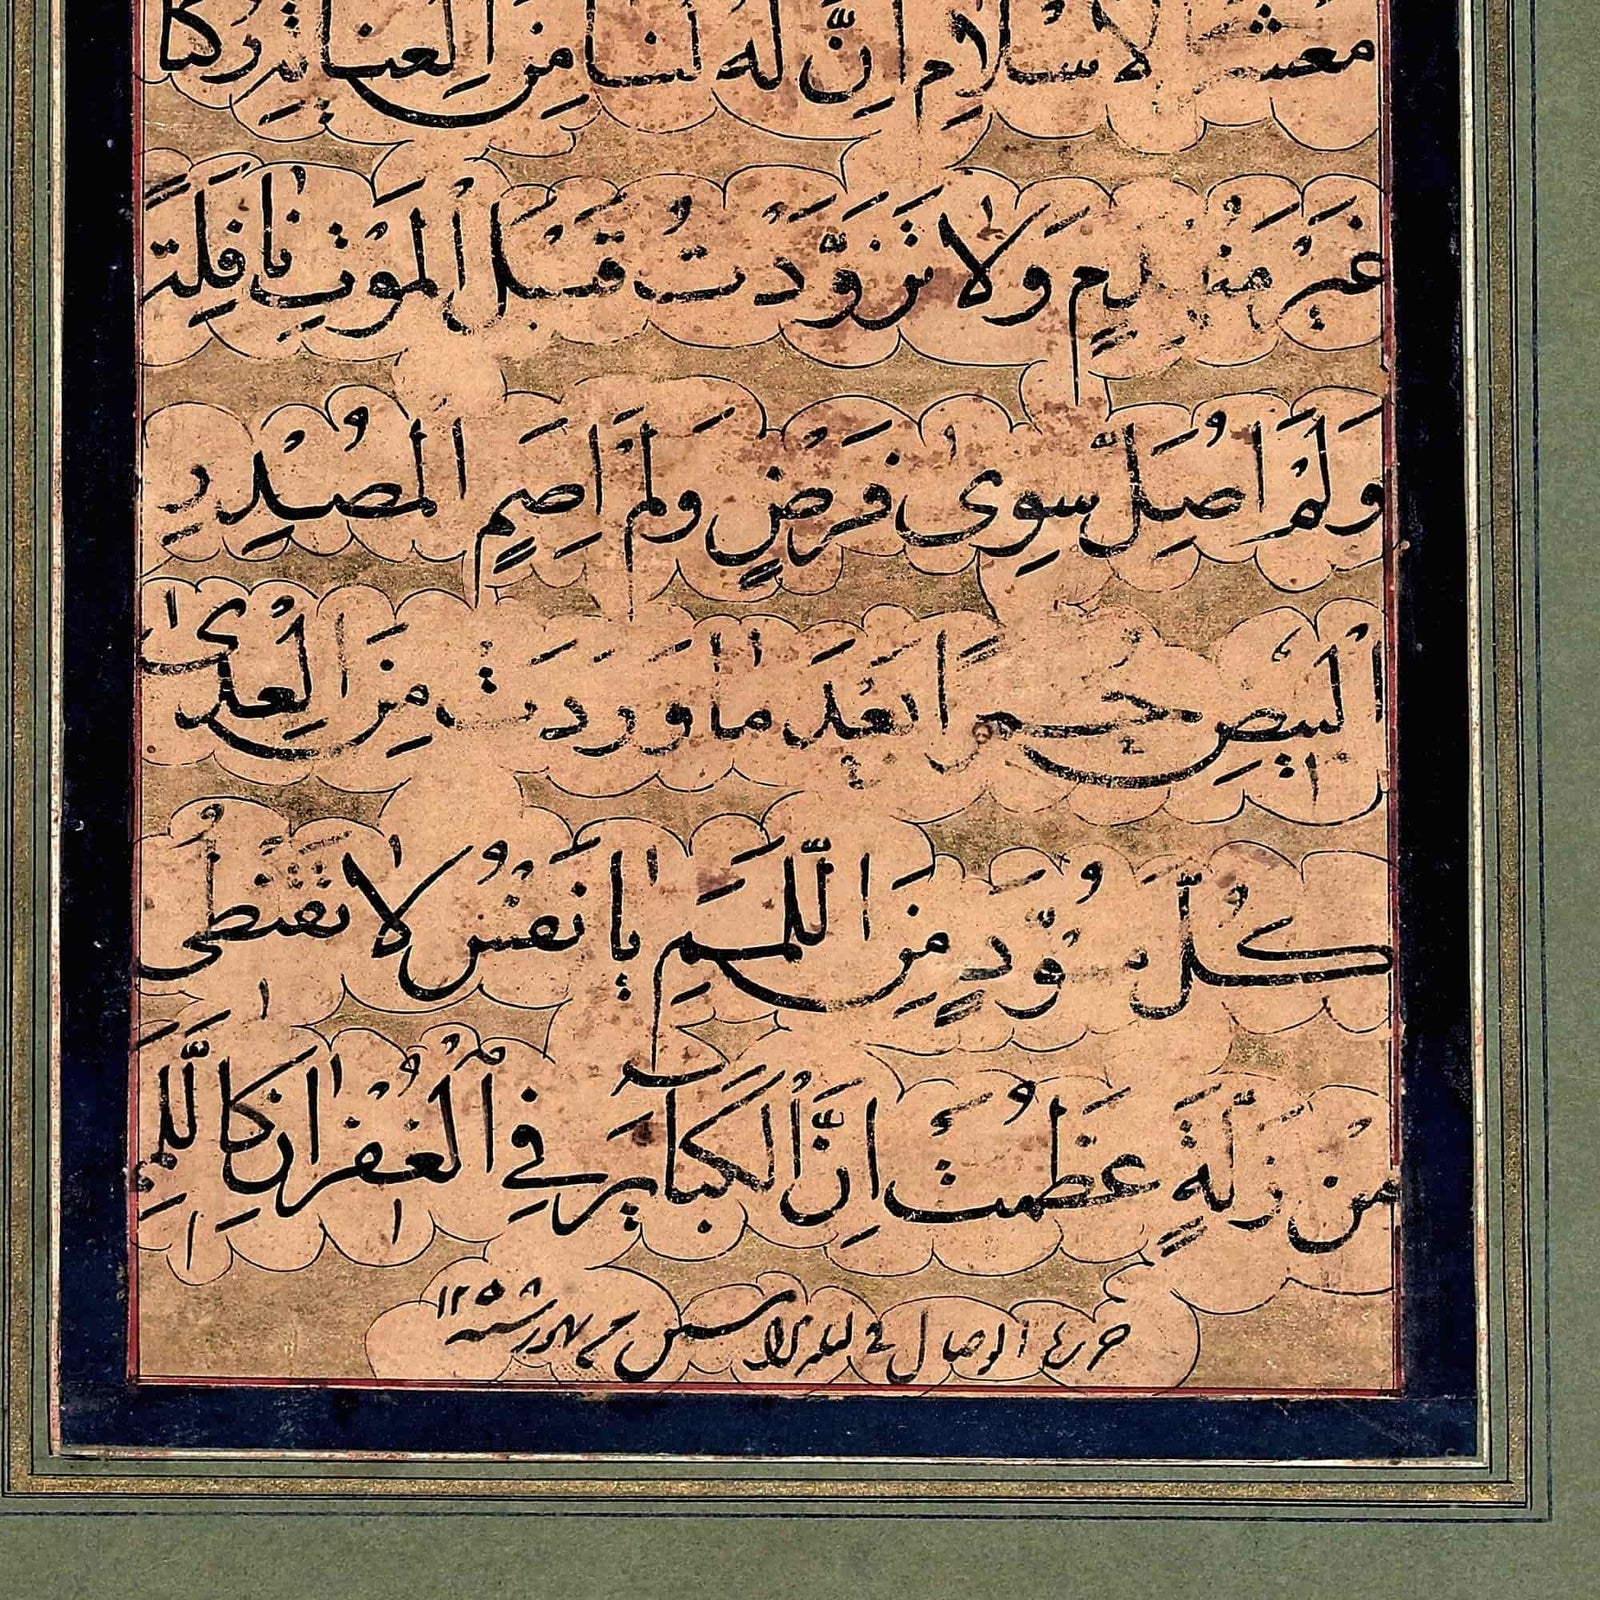 معشر الاسلام انّ لنا من العناية ركنا
غَيْرَ مُنْهَدِمٍ وَلا تَزَوَّدْتُ قَبْلَ الْمَوْتِ نافِلَةً
وَلَمْ اُصَلِّ سِوى فَرْضٍ وَلَمْ اَصُمِ الْمُصْدِرِ
الْبيضِ حُمْرًا بَعْدَ ما وَرَدَتْ مِنَ الْعِدى
كُلَّ مُسْوَدٍّ مِنَ اللِّمَمِ يا نَفْسُ لا تَقْنَطى
مِنْ زَلَّةٍ عَظُمَتْ اِنَّ الْكَبايِرَ فِي الْغُفْرانِ كَاللَّمَمِ
حرره الوصال في ليلة شهور سنه ١٢٥٨